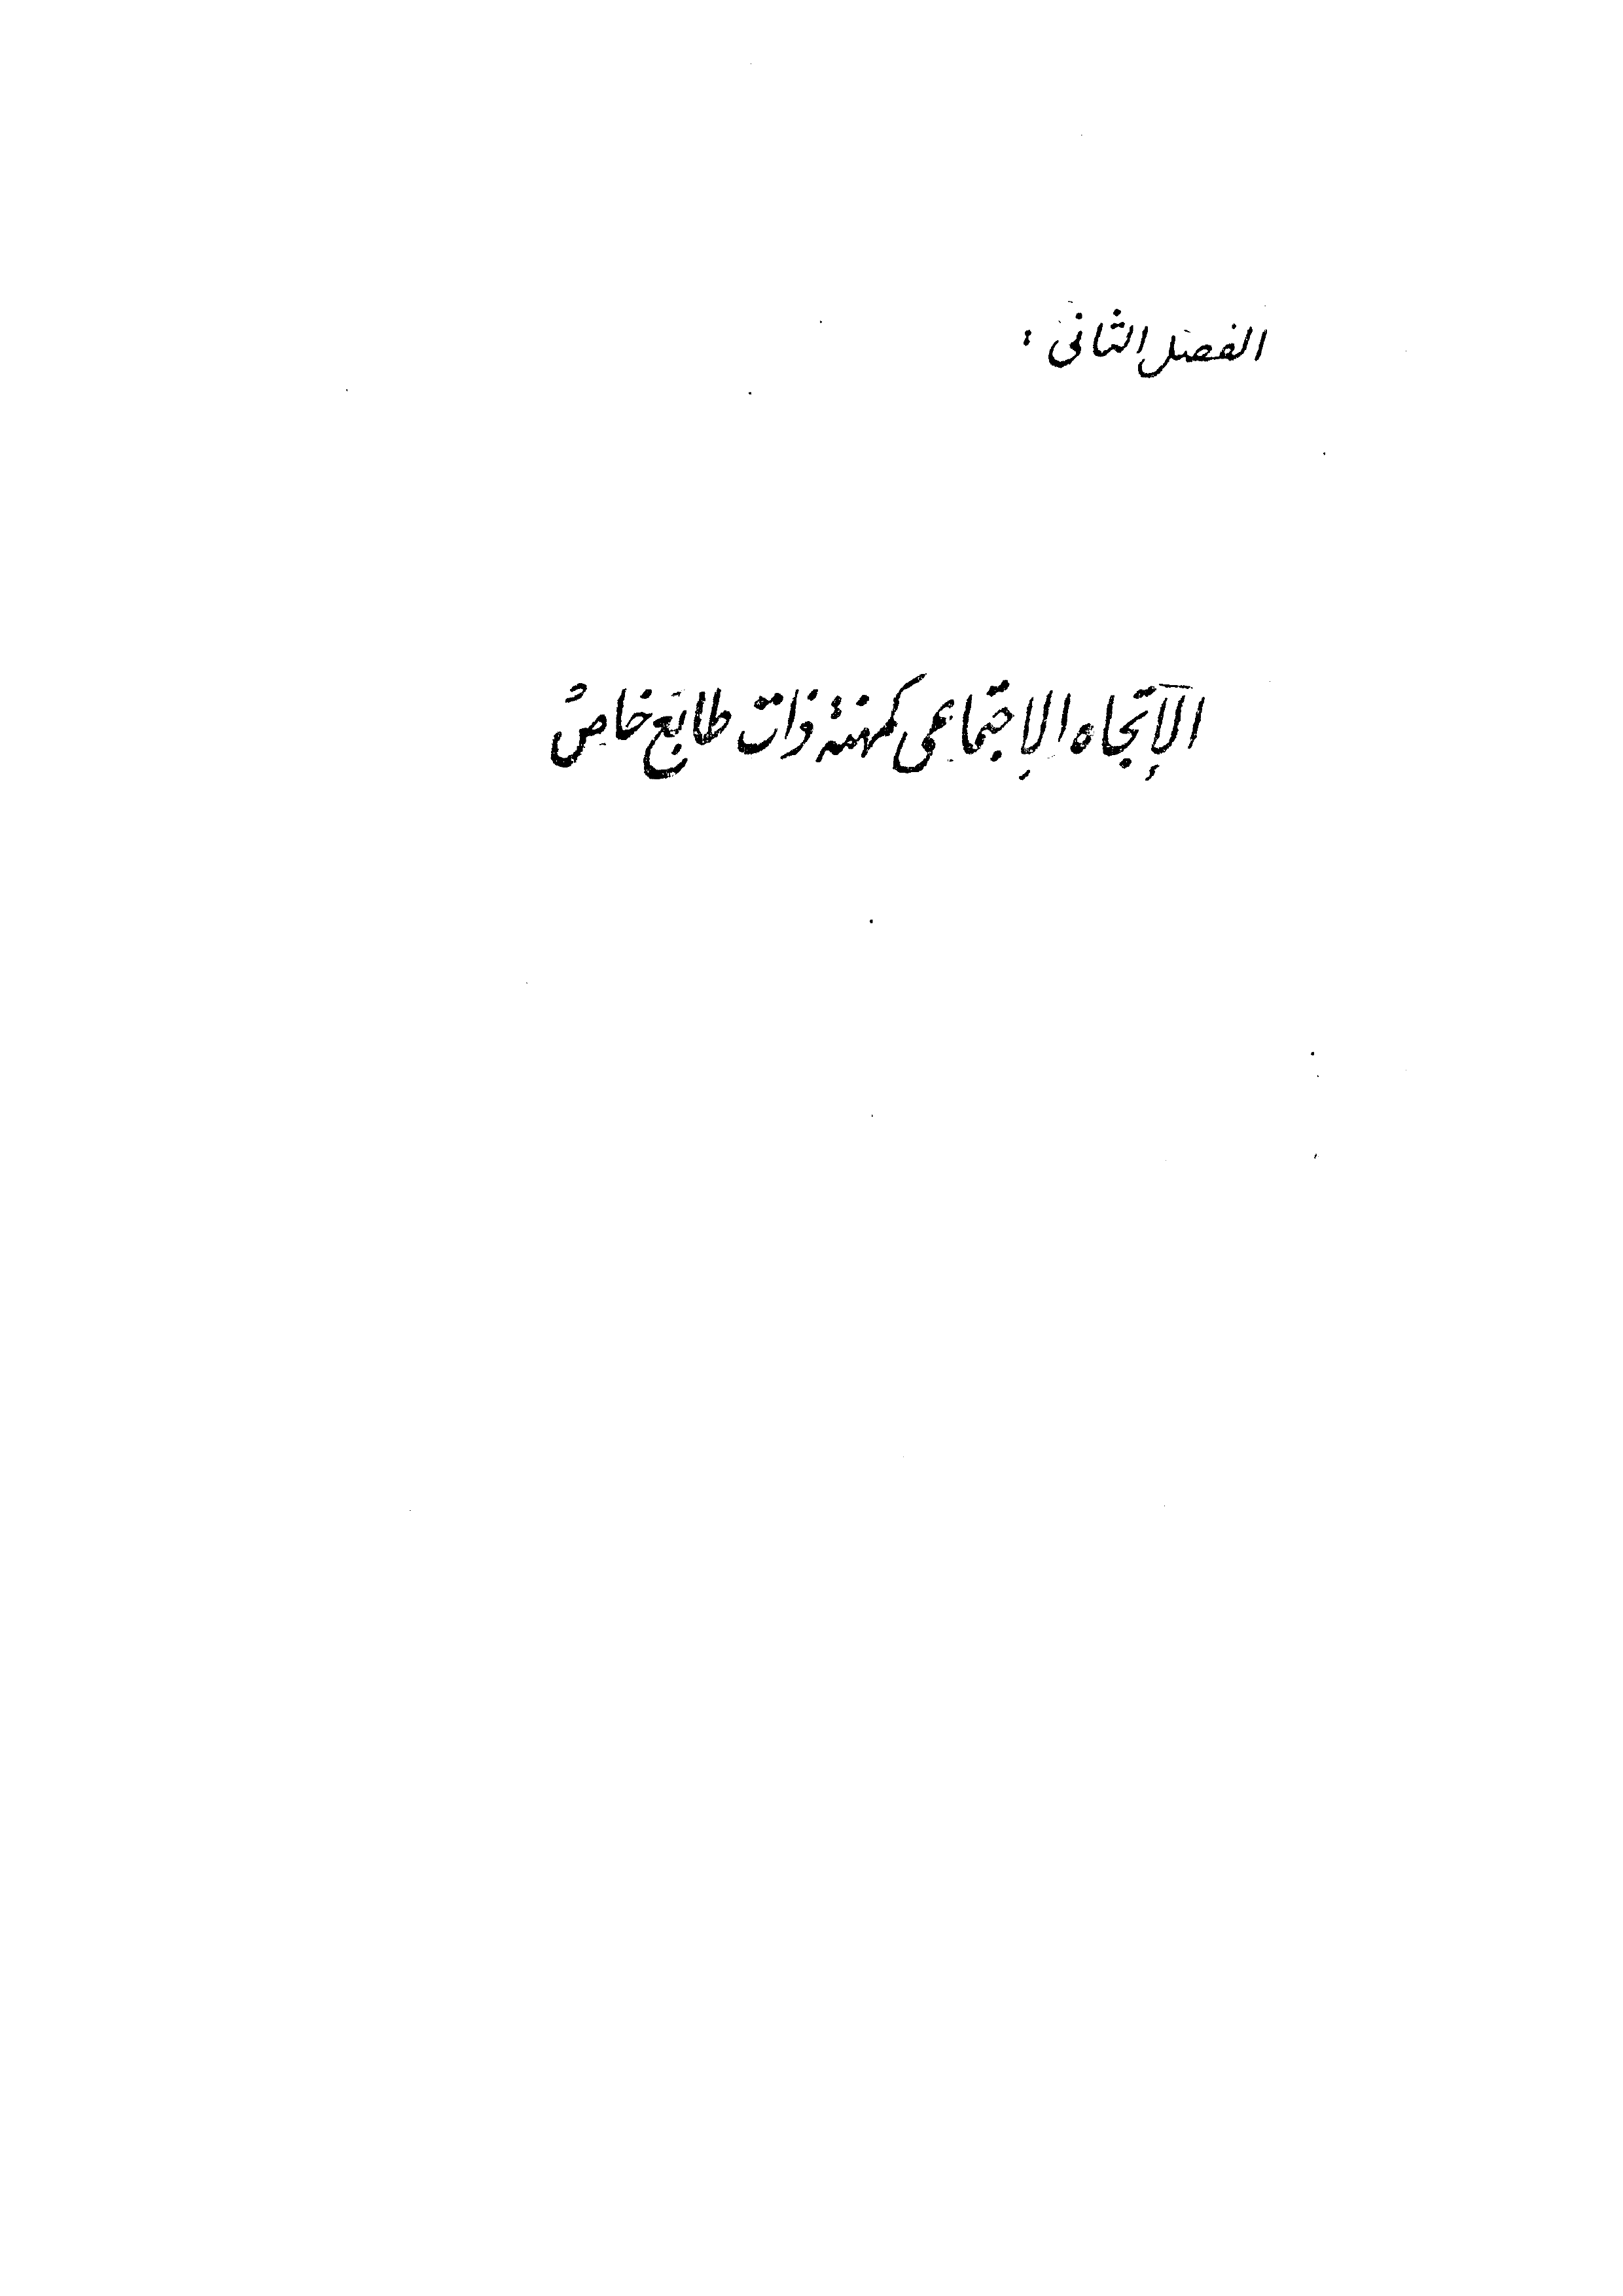 الفصل الثاني :
الإتجاه الإجتماعي كمهنة ذات طابع خاص